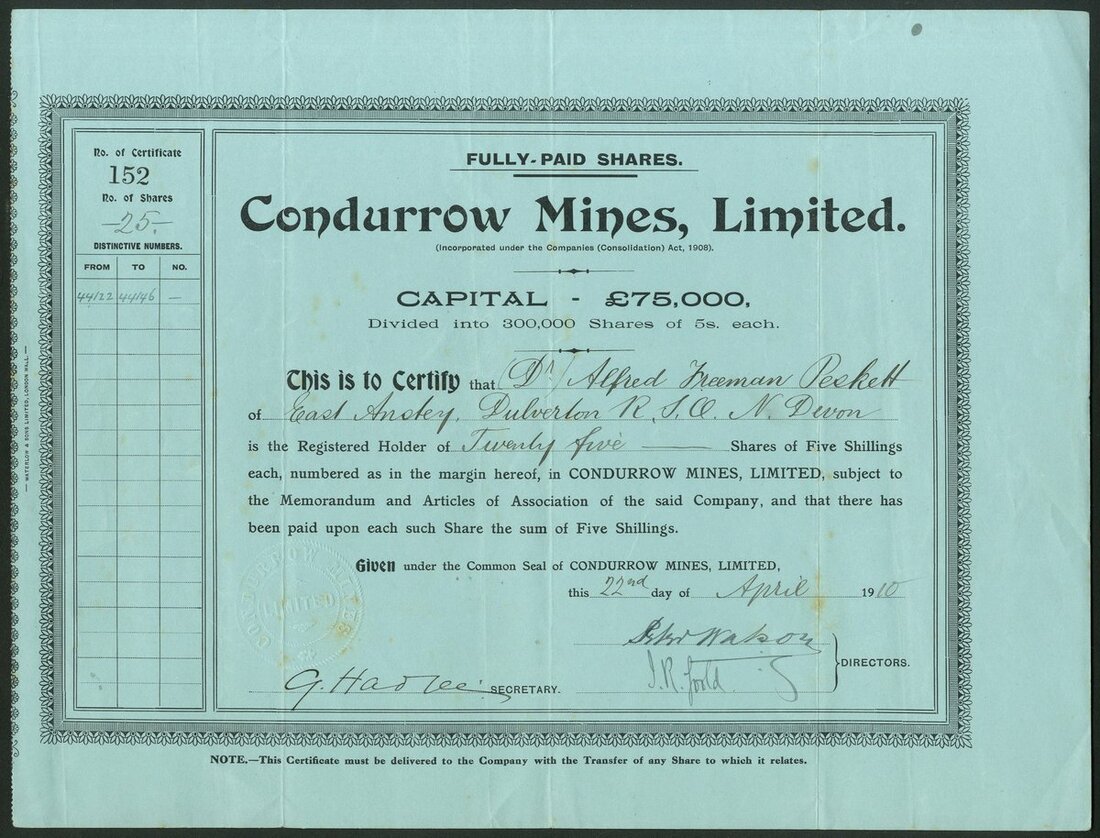 No. of Certificate
152
No. of Shares
-25-
DISTINCTIVE NUMBERS.
FROM TO NO.
44122 44146 —
— WATERLOW & SONS LIMITED, LONDON WALL. —
FULLY-PAID SHARES.
Condurrow Mines, Limited.
(Incorporated under the Companies (Consolidation) Act, 1908).
CAPITAL - £75,000,
Divided into 300,000 Shares of 5s. each.
This is to Certify that (Dr) Alfred Freeman Peskett
of East Anstey, Dulverton R.S.O. N. Devon
is the Registered Holder of Twenty five — Shares of Five Shillings
each, numbered as in the margin hereof, in CONDURROW MINES, LIMITED, subject to
the Memorandum and Articles of Association of the said Company, and that there has
been paid upon each such Share the sum of Five Shillings.
Given under the Common Seal of CONDURROW MINES, LIMITED,
this 22nd day of April 1910
CONDURROW MINES
LIMITED
Watson
J.R.
DIRECTORS.
G. SECRETARY.
NOTE.—This Certificate must be delivered to the Company with the Transfer of any Share to which it relates.